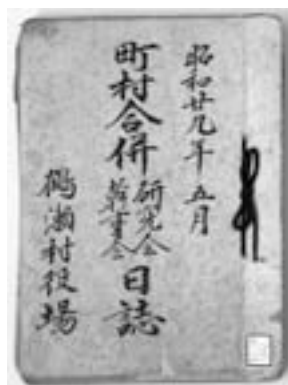 昭和廿九年五月
町村合併研究会幹事会日誌
鶴瀬村役場